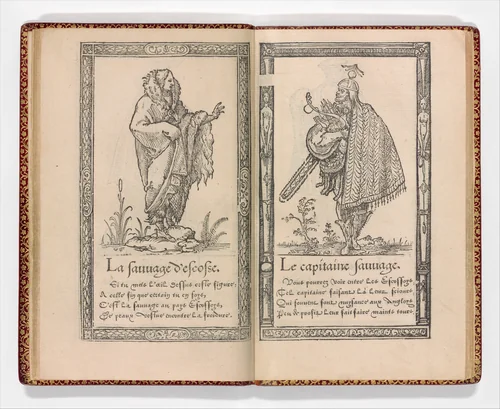 La sauuage d'escosse.
Si tu mets l'œil dessus ceste figure
A celle fin que
C'est la sauuage au pays Escossoys
De peaux vestue encontre la froidure.
Le capitaine sauuage.
Vous pourrez voir entre les Escossoys
Tel capitaine faisant la leur seiours
Qui souuent sont nuysance aux Angloys
Peu de profit leur fait faire maints tours.